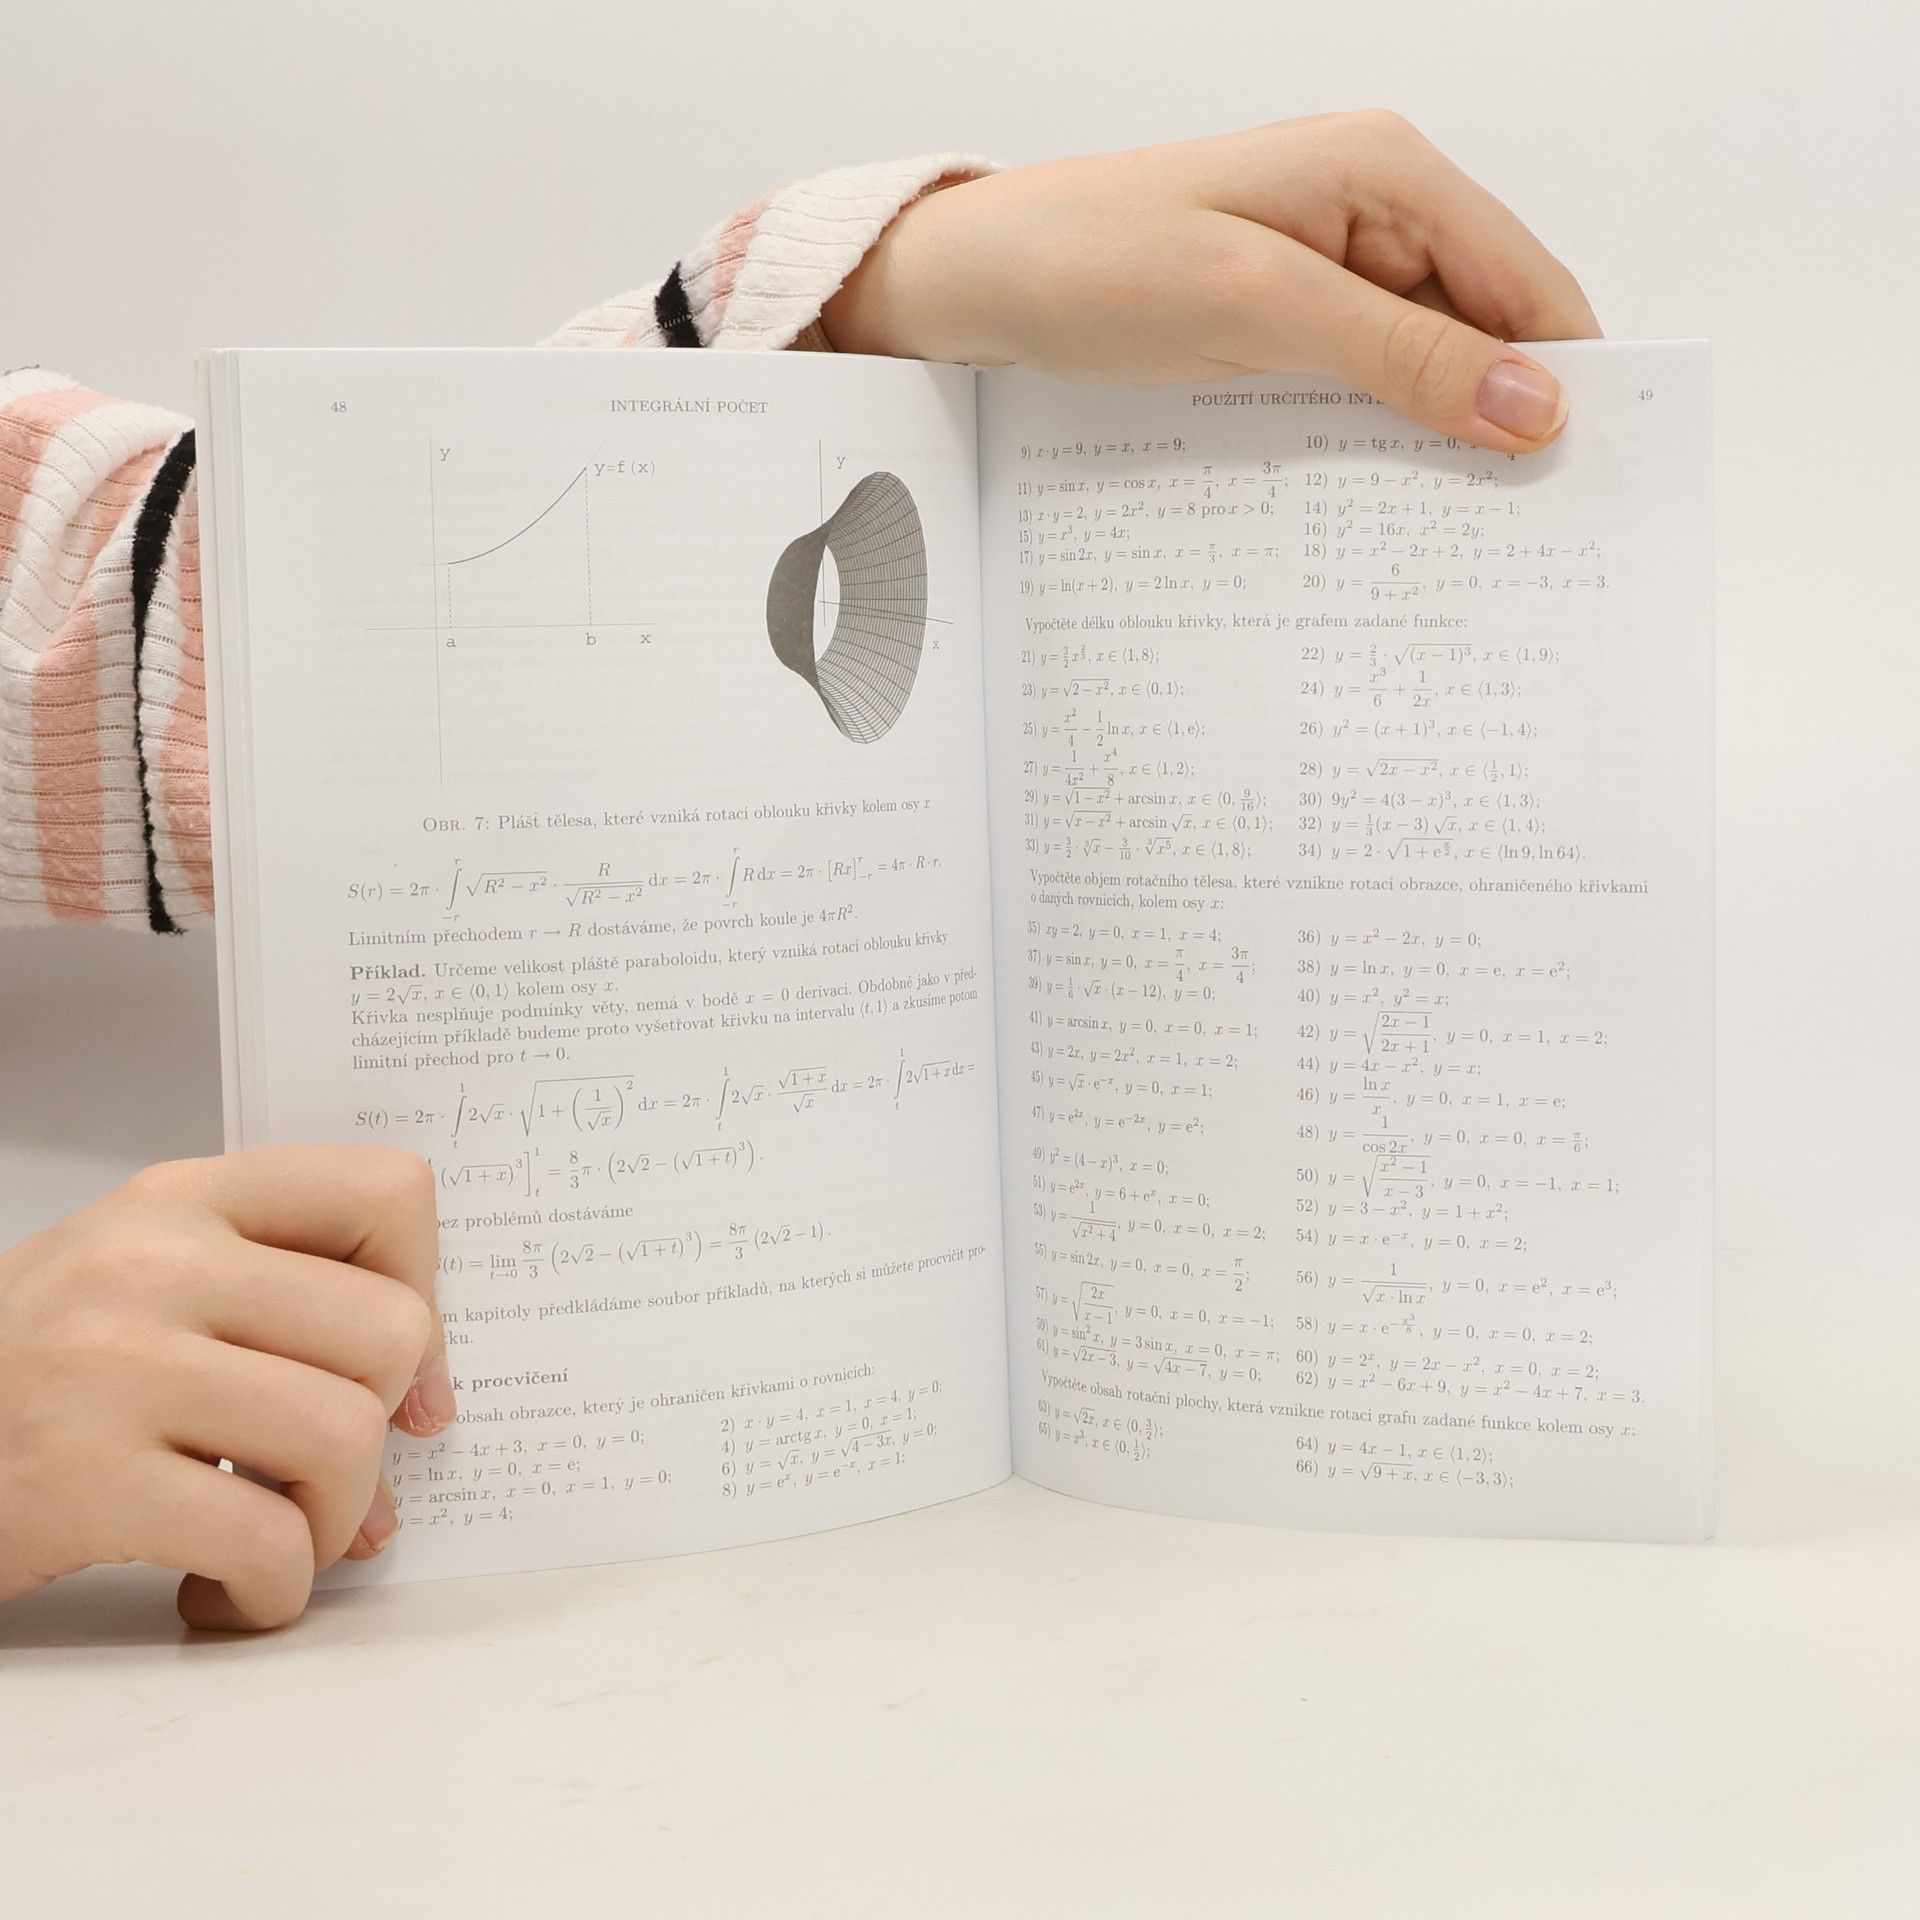 48 INTEGRÁLNÍ POČET
y
y=f(x)
a b x
y
x
OBR. 7: Plášť tělesa, které vzniká rotací oblouku křivky kolem osy x
S(r) = 2π · ∫_{−r}^{r} √(R² − x²) · R/√(R² − x²) dx = 2π · ∫_{−r}^{r} R dx = 2π · [Rx]_{−r}^{r} = 4π · R · r.
Limitním přechodem r → R dostáváme, že povrch koule je 4πR².
Příklad. Určeme velikost pláště paraboloidu, který vzniká rotací oblouku křivky
y = 2√x, x ∈ ⟨0, 1⟩ kolem osy x.
Křivka nesplňuje podmínky věty, nemá v bodě x = 0 derivaci. Obdobně jako v před-
cházejícím příkladě budeme proto vyšetřovat křivku na intervalu ⟨t, 1⟩ a zkusíme potom
limitní přechod pro t → 0.
S(t) = 2π · ∫_{t}^{1} 2√x · √(1 + (1/√x)²) dx = 2π · ∫_{t}^{1} 2√x · √(1+x)/√x dx = 2π · ∫_{t}^{1} 2√(1+x) dx =
(√(1+x))³]_{t}^{1} = 8/3 π · (2√2 − (√(1+t))³).
bez problémů dostáváme
(t) = lim_{t→0} 8π/3 (2√2 − (√(1+t))³) = 8π/3 (2√2 − 1).
m kapitoly předkládáme soubor příkladů, na kterých si můžete procvičit pro-
ku.
k procvičení
obsah obrazce, který je ohraničen křivkami o rovnicích:
y = x² − 4x + 3, x = 0, y = 0; 2) x · y = 4, x = 1, x = 4, y = 0;
y = ln x, y = 0, x = e; 4) y = arctg x, y = 0, x = 1;
y = arcsin x, x = 0, x = 1, y = 0; 6) y = √x, y = √(4 − 3x), y = 0;
y = x², y = 4; 8) y = eˣ, y = e⁻ˣ, x = 1;
POUŽITÍ URČITÉHO 49
9) x · y = 9, y = x, x = 9; 10) y = tg x, y = 0,
11) y = sin x, y = cos x, x = π/4, x = 3π/4; 12) y = 9 − x², y = 2x²;
13) x · y = 2, y = 2x², y = 8 pro x > 0; 14) y² = 2x + 1, y = x − 1;
15) y = x³, y = 4x; 16) y² = 16x, x² = 2y;
17) y = sin 2x, y = sin x, x = π/3, x = π; 18) y = x² − 2x + 2, y = 2 + 4x − x²;
19) y = ln(x + 2), y = 2 ln x, y = 0; 20) y = 6/(9 + x²), y = 0, x = −3, x = 3.
Vypočtěte délku oblouku křivky, která je grafem zadané funkce:
21) y = 3/2 x^(2/3), x ∈ ⟨1, 8⟩; 22) y = 2/3 · √((x − 1)³), x ∈ ⟨1, 9⟩;
23) y = √(2 − x²), x ∈ ⟨0, 1⟩; 24) y = x³/6 + 1/(2x), x ∈ ⟨1, 3⟩;
25) y = x²/4 − 1/2 ln x, x ∈ ⟨1, e⟩; 26) y² = (x + 1)³, x ∈ ⟨−1, 4⟩;
27) y = 1/(4x²) + x⁴/8, x ∈ ⟨1, 2⟩; 28) y = √(2x − x²), x ∈ ⟨1/2, 1⟩;
29) y = √(1 − x²) + arcsin x, x ∈ ⟨0, 9/16⟩; 30) 9y² = 4(3 − x)³, x ∈ ⟨1, 3⟩;
31) y = √(x − x²) + arcsin √x, x ∈ ⟨0, 1⟩; 32) y = 1/3 (x − 3) √x, x ∈ ⟨1, 4⟩;
33) y = 3/2 · ∛x − 3/10 · ∛(x⁵), x ∈ ⟨1, 8⟩; 34) y = 2 · √(1 + e^(x/2)), x ∈ ⟨ln 9, ln 64⟩.
Vypočtěte objem rotačního tělesa, které vznikne rotací obrazce, ohraničeného křivkami
o daných rovnicích, kolem osy x:
35) xy = 2, y = 0, x = 1, x = 4; 36) y = x² − 2x, y = 0;
37) y = sin x, y = 0, x = π/4, x = 3π/4; 38) y = ln x, y = 0, x = e, x = e²;
39) y = 1/6 · √x · (x − 12), y = 0; 40) y = x², y² = x;
41) y = arcsin x, y = 0, x = 0, x = 1; 42) y = √((2x − 1)/(2x + 1)), y = 0, x = 1, x = 2;
43) y = 2x, y = 2x², x = 1, x = 2; 44) y = 4x − x², y = x;
45) y = √x · e⁻ˣ, y = 0, x = 1; 46) y = ln x/x, y = 0, x = 1, x = e;
47) y = e²ˣ, y = e⁻²ˣ, y = e²; 48) y = 1/cos 2x, y = 0, x = 0, x = π/6;
49) y² = (4 − x)³, x = 0; 50) y = √((x² − 1)/(x − 3)), y = 0, x = −1, x = 1;
51) y = e²ˣ, y = 6 + eˣ, x = 0; 52) y = 3 − x², y = 1 + x²;
53) y = 1/√(x² + 4), y = 0, x = 0, x = 2; 54) y = x · e⁻ˣ, y = 0, x = 2;
55) y = sin 2x, y = 0, x = 0, x = π/2; 56) y = 1/√(x · ln x), y = 0, x = e², x = e³;
57) y = √(2x/(x − 1)), y = 0, x = 0, x = −1; 58) y = x · e^(−x³/8), y = 0, x = 0, x = 2;
59) y = sin² x, y = 3 sin x, x = 0, x = π; 60) y = 2ˣ, y = 2x − x², x = 0, x = 2;
61) y = √(2x − 3), y = √(4x − 7), y = 0; 62) y = x² − 6x + 9, y = x² − 4x + 7, x = 3.
Vypočtěte obsah rotační plochy, která vznikne rotací grafu zadané funkce kolem osy x:
63) y = √(2x), x ∈ ⟨0, 3/2⟩; 64) y = 4x − 1, x ∈ ⟨1, 2⟩;
65) y = x³, x ∈ ⟨0, 1/2⟩; 66) y = √(9 + x), x ∈ ⟨−3, 3⟩;